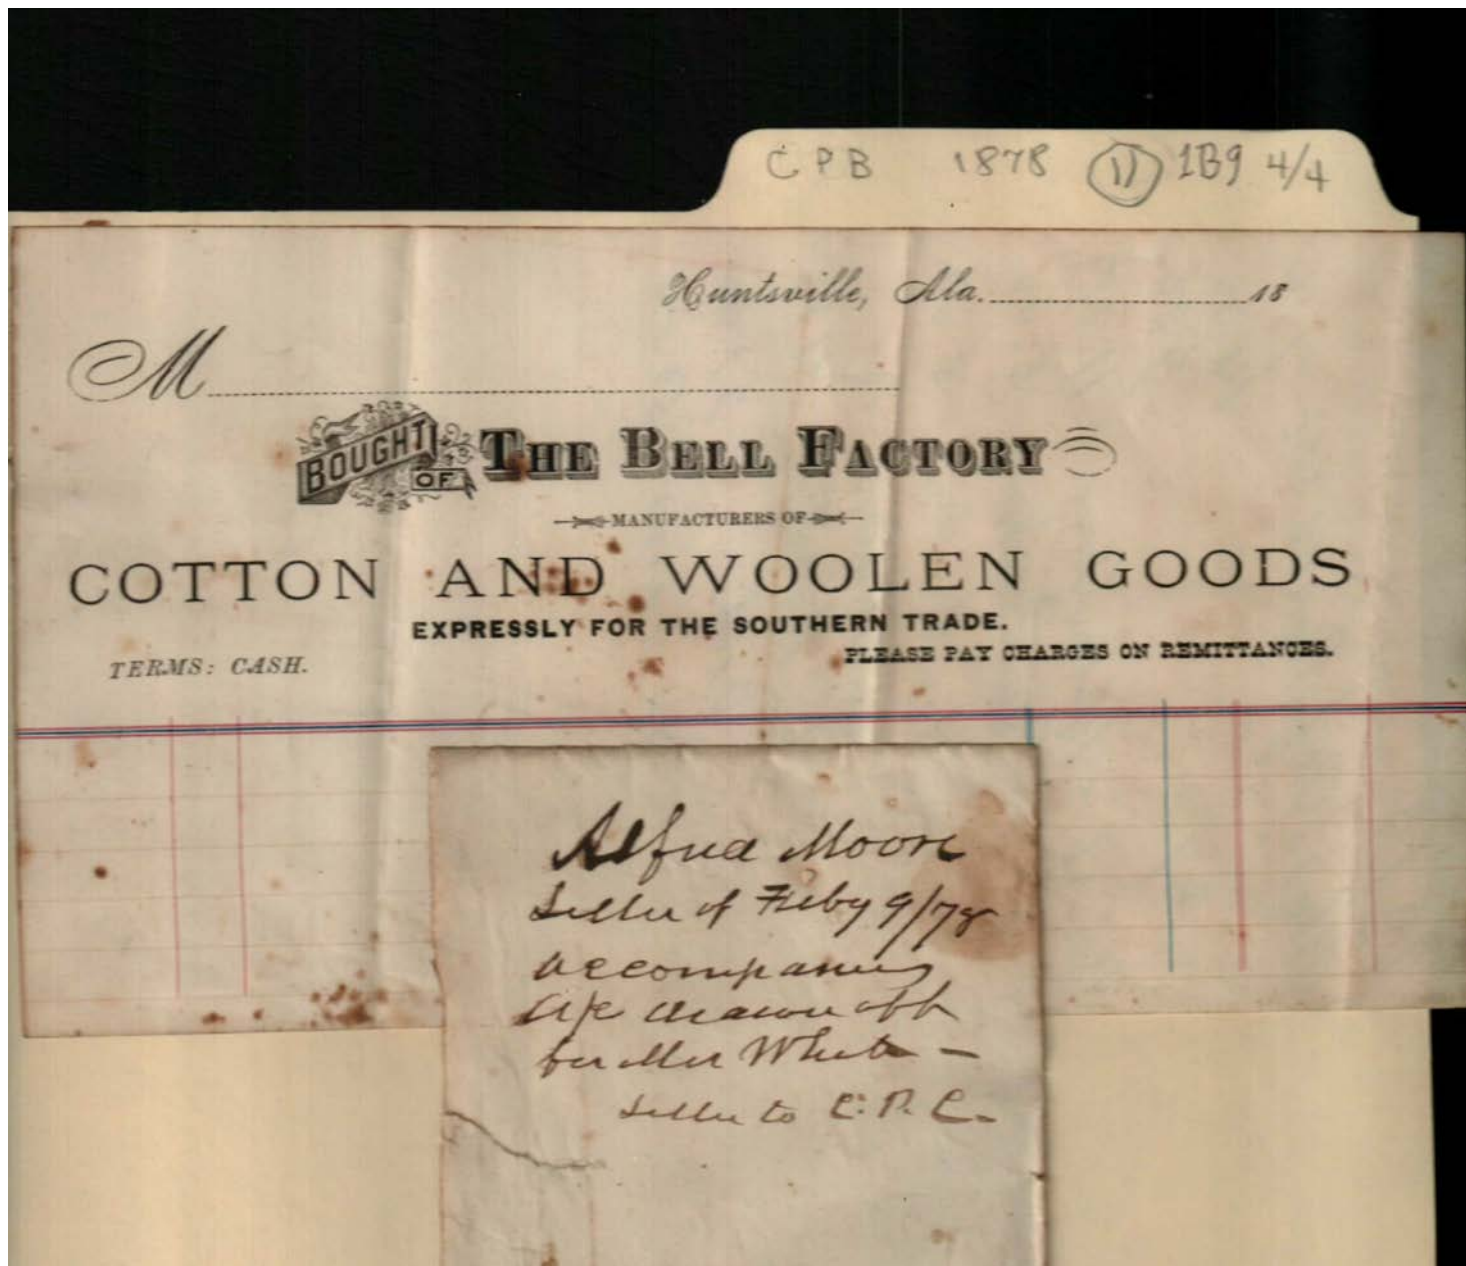 CPB 1878 11 1B9 4/4
Huntsville, Ala. 18
M
BOUGHT OF THE BELL FACTORY
MANUFACTURERS OF
COTTON AND WOOLEN GOODS
EXPRESSLY FOR THE SOUTHERN TRADE.
TERMS: CASH. PLEASE PAY CHARGES ON REMITTANCES.
Alfred Moore
Letter of Feby 9/78
accompanies
a/c drawn off
for Mr White –
Letter to C. P. C.